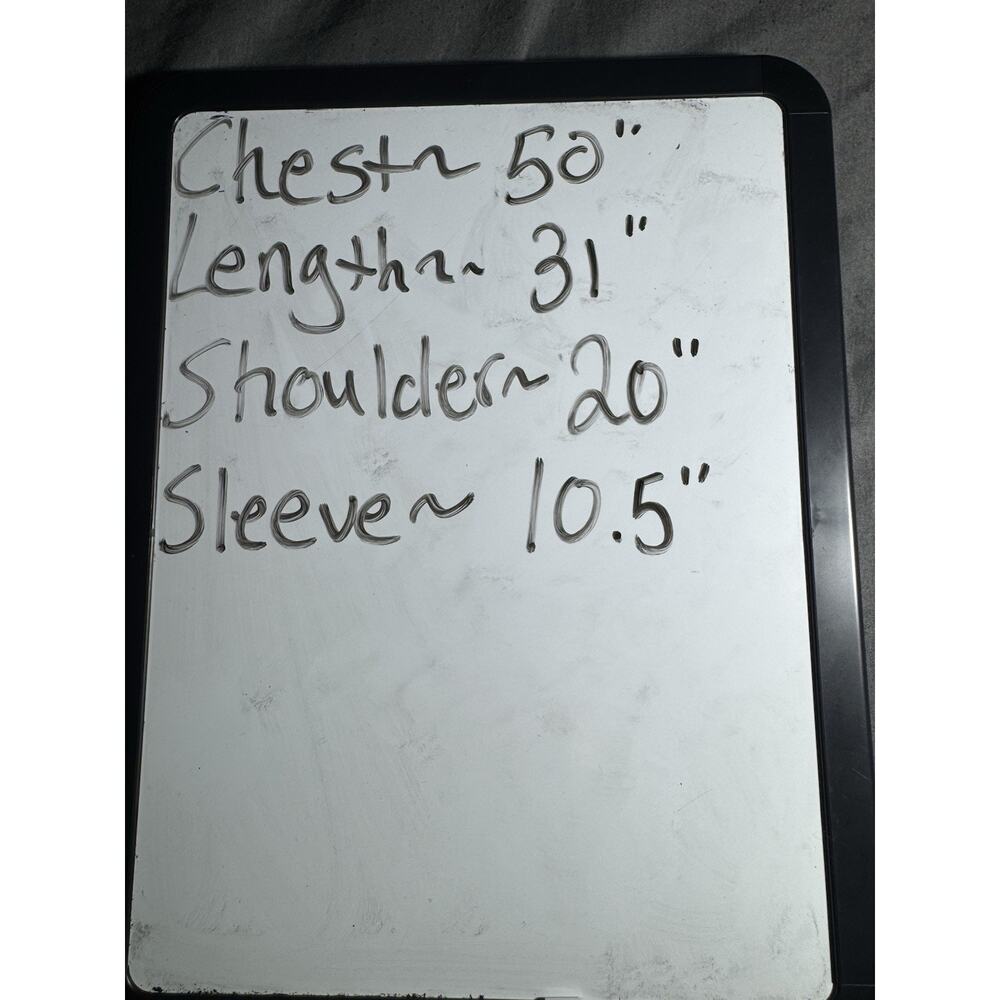 Chest~ 50"
Length~~ 31"
Shoulder~ 20"
Sleeve~ 10.5"